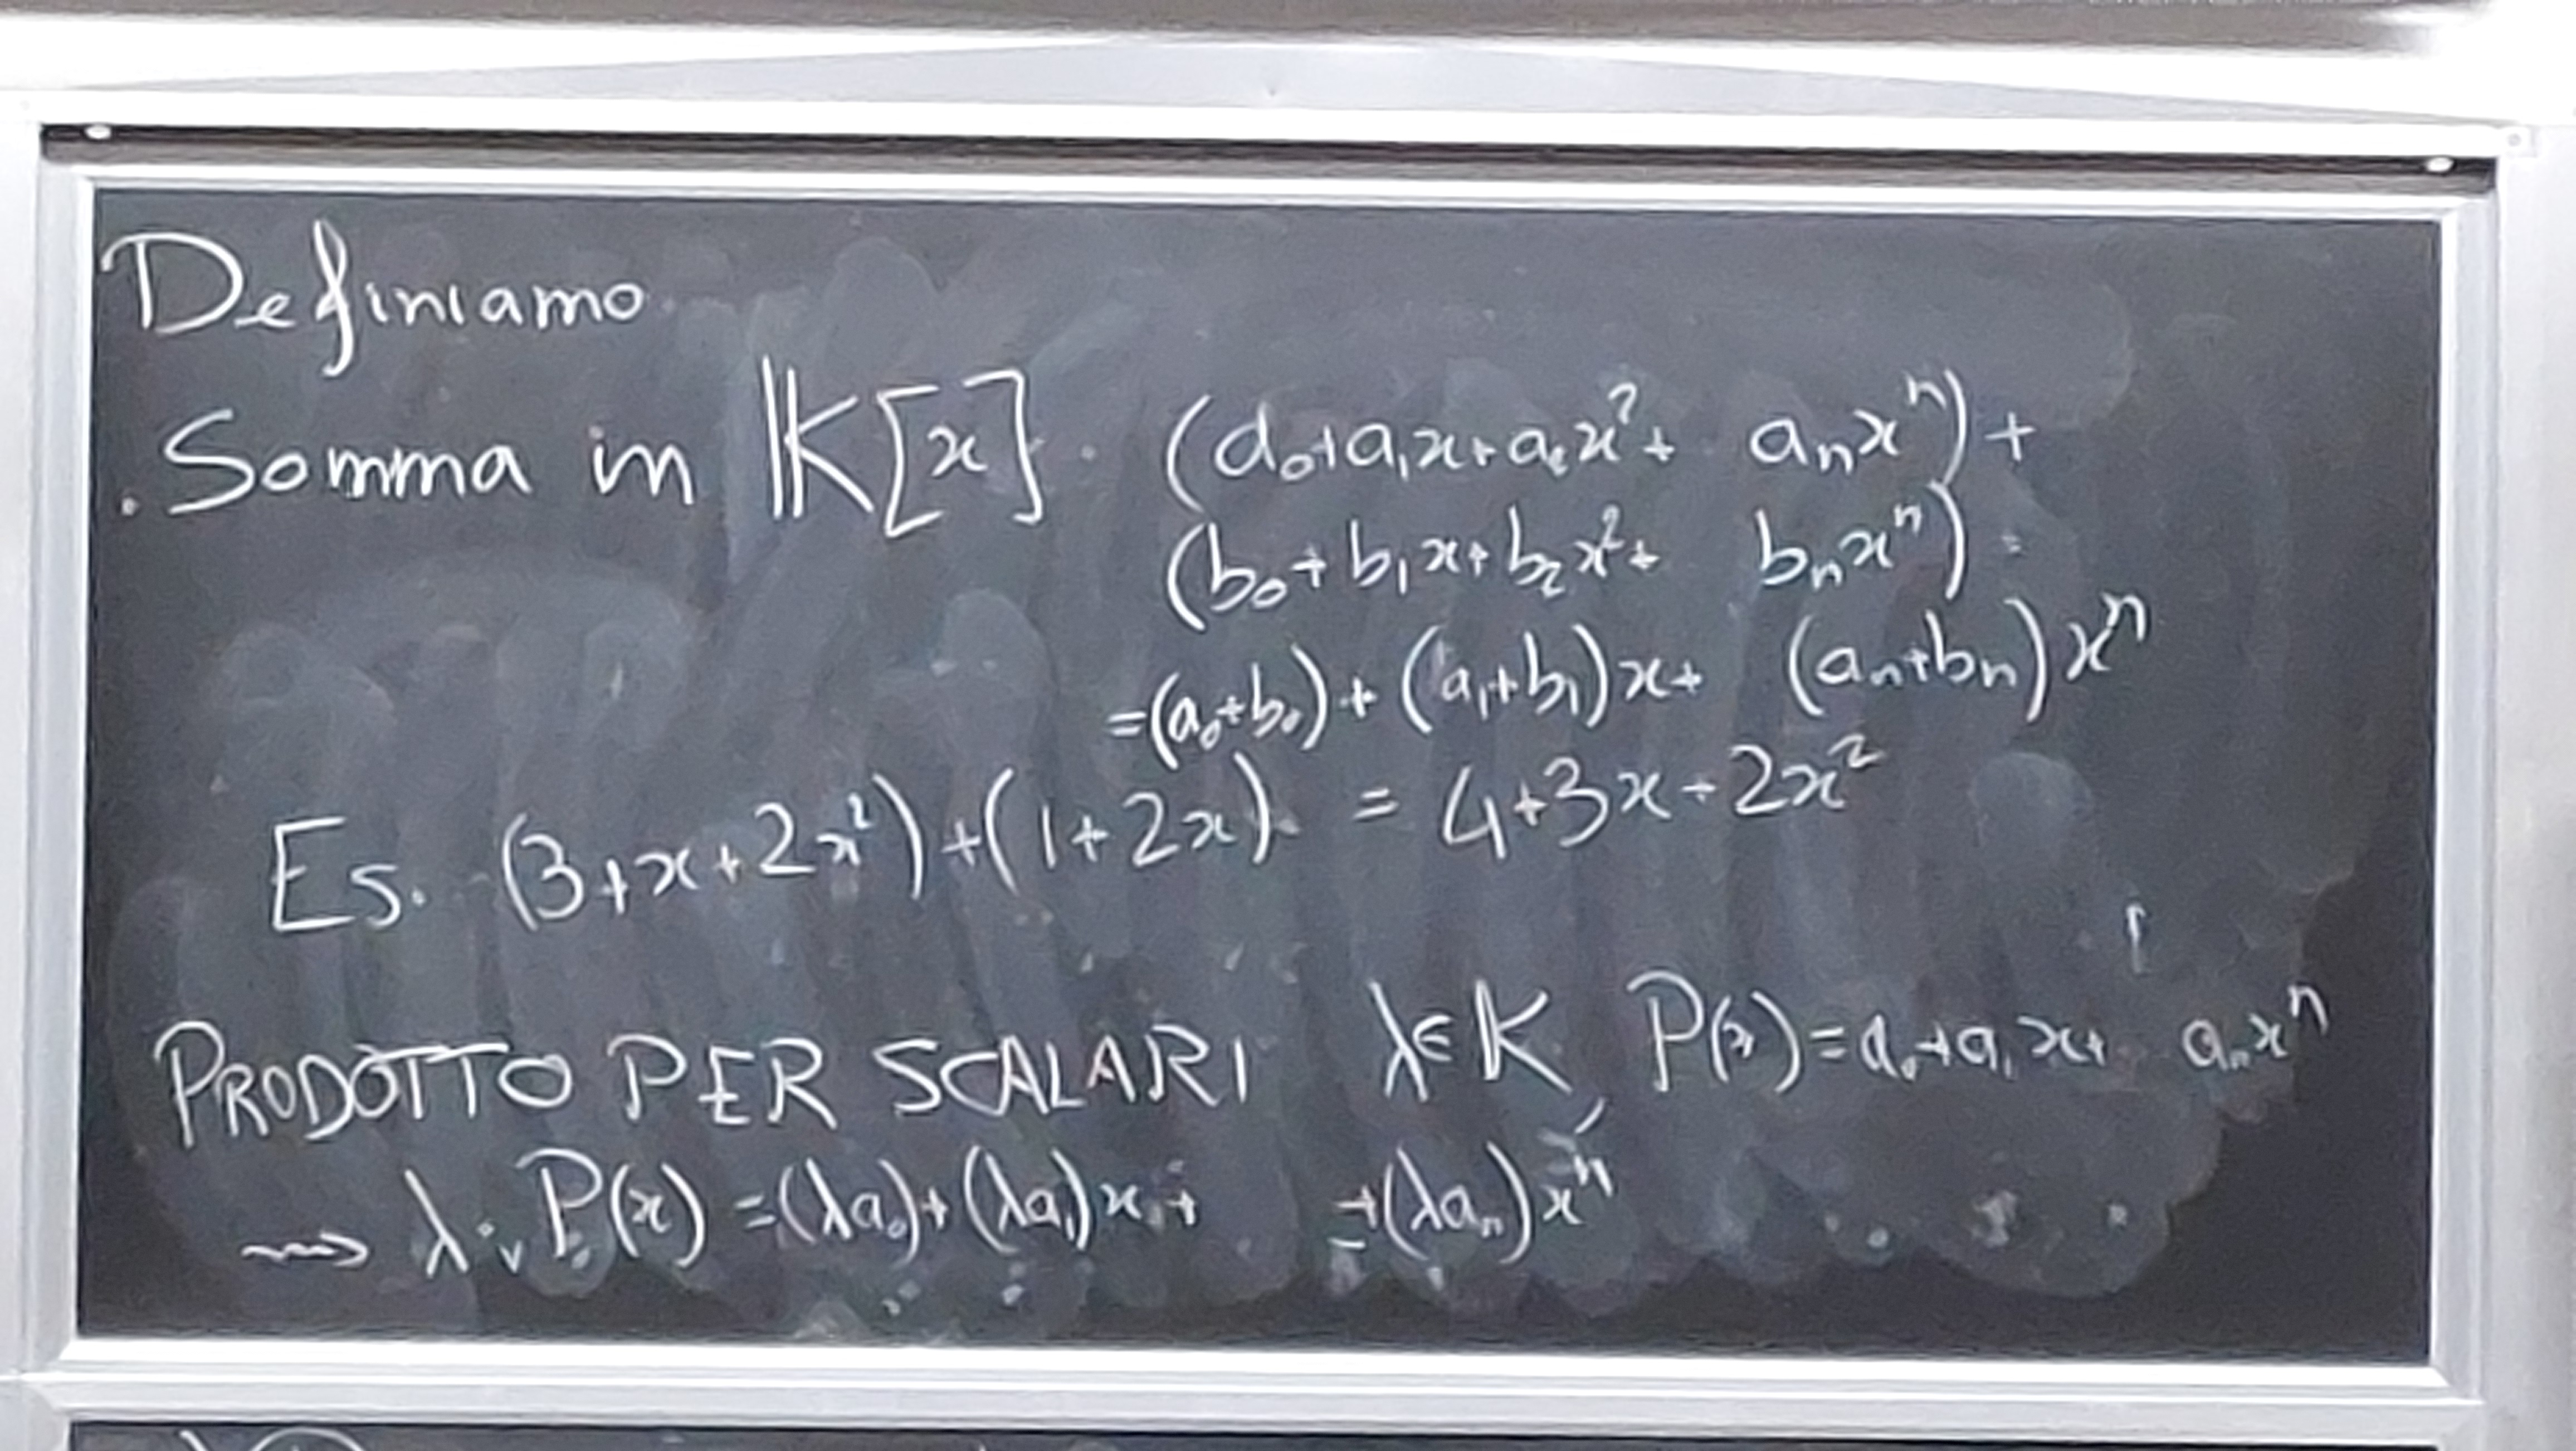 Definiamo
. Somma in 𝕂[x]. (a₀+a₁x+a₂x²+ aₙxⁿ)+
(b₀+b₁x+b₂x²+ bₙxⁿ) =
=(a₀+b₀)+(a₁+b₁)x+ (aₙ+bₙ)xⁿ
Es. (3+x+2x²)+(1+2x) = 4+3x+2x²
PRODOTTO PER SCALARI λ∈𝕂, P(x)=a₀+a₁x+ aₙxⁿ
⟿ λ·ᵥP(x)=(λa₀)+(λa₁)x+ +(λaₙ)xⁿ